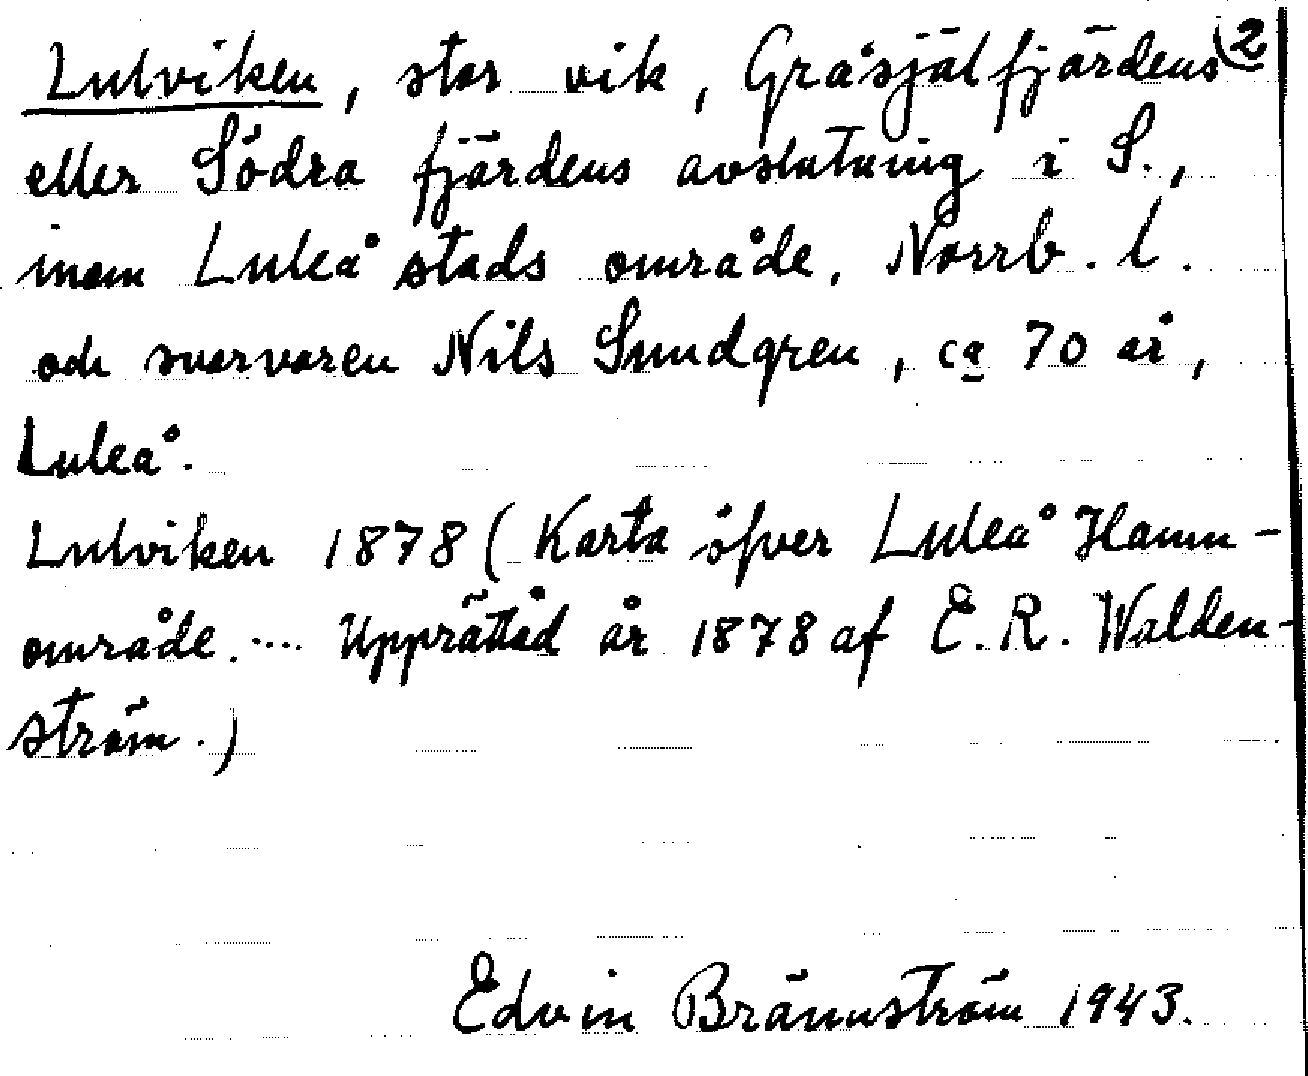 Lulviken, stor vik, Gråsjälfjärdens (2
eller Södra fjärdens avslutning i S.,
inom Luleå stads område, Norrb. l.
och svarvaren Nils Sundgren, ca 70 år,
Luleå.
Lulviken 1878 (Karta öfver Luleå Hamn-
område. .... Upprättad år 1878 af E. R. Walden-
ström.)
Edvin Brännström 1943.